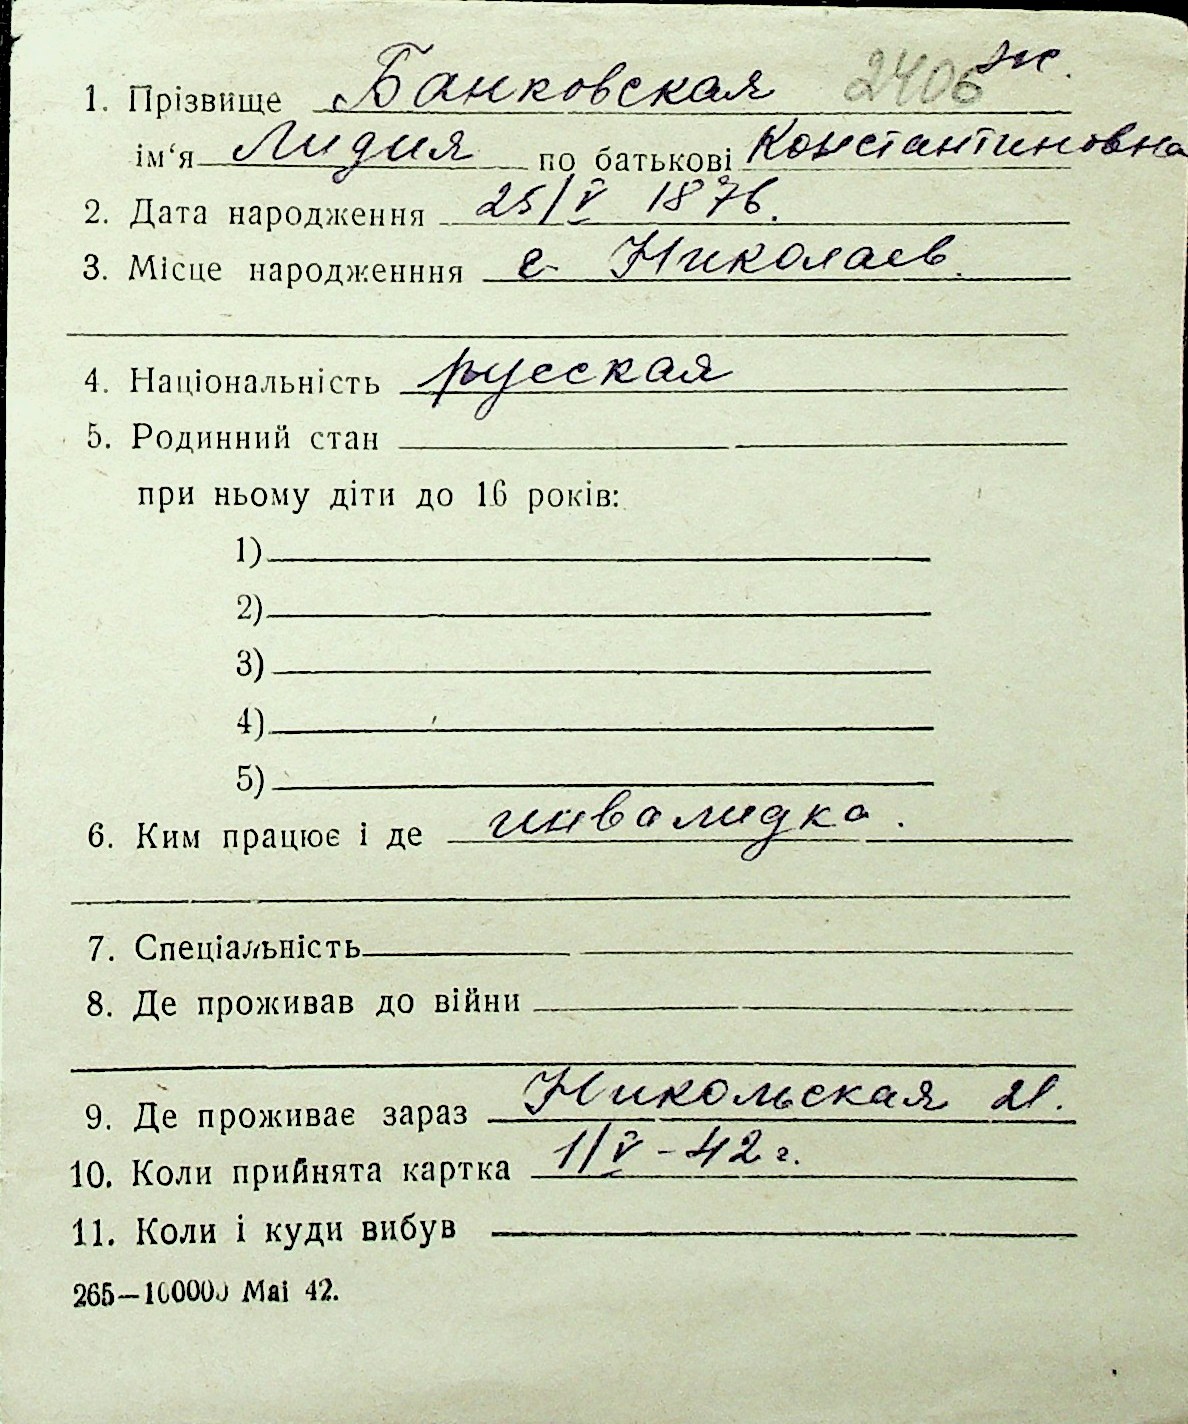 1. Прізвище Банковская 2406 ж.
ім‘я Лидия по батькові Константиновна
2. Дата народження 25/V 1876.
3. Місце народженння г. Николаев.
4. Національність русская
5. Родинний стан
при ньому діти до 16 років:
1)
2)
3)
4)
5)
6. Ким працює і де инвалидка.
7. Спеціальність
8. Де проживав до війни
9. Де проживає зараз Никольская 21.
10. Коли прийнята картка 1/V-42 г.
11. Коли і куди вибув
265—100000 Mai 42.